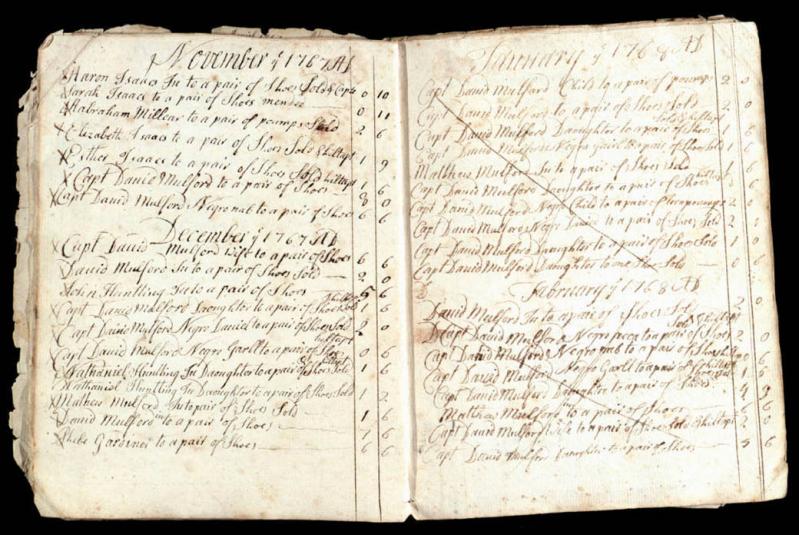 November y 1767 AD
Aaron Isaacs Ju to a pair of Shoes Sold & Capt 0 10
Sarah Isaacs to a pair of Shoes mended 0 11
Abraham Millear to a pair of poumps Sold 2 6
Elizabeth Isaacs to a pair of Shoes Sold & hilltapt 1 9
Esther Isaacs to a pair of Shoes Sold hilltapt 1 6
Capt David Mulford to a pair of Shoes 8 0
Capt David Mulford Negro nab to a pair of Shoes 6 6
December y 1767 AD
Capt David Mulford Wife to a pair of Shoes 6 6
David Mulford Ju to a pair of Shoes Sold 2 0
John Huntting Ju to a pair of Shoes 5 6
Capt David Mulford Daoughter to a pair of Shoes Sold & hilltapt 1 6
Capt David Mulford Negro Daniel to a pair of Shoes Sold hilltapt 2 0
Capt David Mulford Negro Garll to a pair of Shoes 0 6
Nathaniel Huntting Ju Daoughter to a pair of Shoes Sold 1 6
Nathaniel Huntting Ju Daoughter to a pair of Shoes Sold 1 2
Mathew Mulford Ju to pair of Shoes Sold 1 6
David Mulford Ju to a pair of Shoes 7 6
Phebe Gardiner to a pair of Shoes 6 6
January y 1768 AD
Capt David Mulford Child to a pair of poumps 2 0
Capt David Mulford to a pair of Shoes Sold 2 0
Capt David Mulford Daoughter to a pair of Shoes Sold & hilltapt 1 6
Capt David Mulford Negro to a pair of Shoes 1 6
Mathew Mulford Ju to a pair of Shoes Sold
Capt David Mulford Daoughter to a pair of Shoes 1 6
Capt David Mulford Negro Child to a pair of poumps 2 0
Capt David Mulford Negro Daniel to a pair of Shoes Sold 2 0
Capt David Mulford Daoughter to a pair of Shoes Sold 1 0
Capt David Mulford Daoughter to one Shoe Sold 0
Fabruary y 1768 AD
David Mulford Ju to a pair of Shoes Sold 2 0
Capt David Mulford Negro to a pair of Shoes Sold & hilltapt 2 0
Capt David Mulford Negro nab to a pair of Shoes 0 6
Capt David Mulford Negro Garll to a pair of Shoes 1 6
Capt David Mulford Daoughter to a pair of Shoes 4 9
Mathew Mulford to a pair of Shoes 6 6
Capt David Mulford Wife to a pair of Shoes Sold & hilltapt 2 0
Capt David Mulford Daoughter to a pair of Shoes 5 6